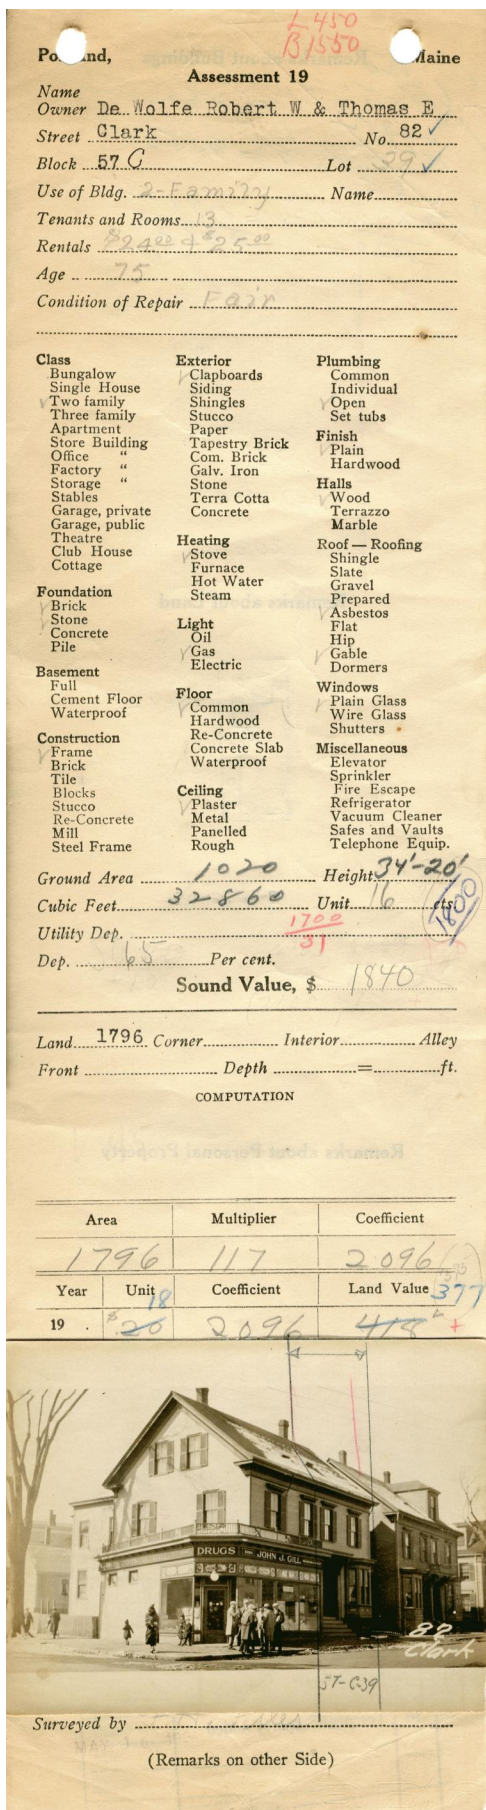 L 450
B 1550
Portland, Maine
Assessment 19
Name
Owner De Wolfe Robert W & Thomas E
Street Clark No. 82 ✓
Block 57 C Lot 39 ✓
Use of Bldg. 2-Family Name
Tenants and Rooms 13
Rentals $24.00 + $25.00
Age 75
Condition of Repair Fair
Class
Bungalow
Single House
✓ Two family
Three family
Apartment
Store Building
Office "
Factory "
Storage "
Stables
Garage, private
Garage, public
Theatre
Club House
Cottage
Foundation
✓ Brick
✓ Stone
Concrete
Pile
Basement
Full
Cement Floor
Waterproof
Construction
✓ Frame
Brick
Tile
Blocks
Stucco
Re-Concrete
Mill
Steel Frame
Exterior
✓ Clapboards
Siding
Shingles
Stucco
Paper
Tapestry Brick
Com. Brick
Galv. Iron
Stone
Terra Cotta
Concrete
Heating
✓ Stove
Furnace
Hot Water
Steam
Light
Oil
✓ Gas
Electric
Floor
✓ Common
Hardwood
Re-Concrete
Concrete Slab
Waterproof
Ceiling
✓ Plaster
Metal
Panelled
Rough
Plumbing
Common
Individual
✓ Open
Set tubs
Finish
✓ Plain
Hardwood
Halls
✓ Wood
Terrazzo
Marble
Roof — Roofing
Shingle
Slate
Gravel
Prepared
✓ Asbestos
Flat
Hip
✓ Gable
Dormers
Windows
✓ Plain Glass
Wire Glass
Shutters
Miscellaneous
Elevator
Sprinkler
Fire Escape
Refrigerator
Vacuum Cleaner
Safes and Vaults
Telephone Equip.
Ground Area 1020 Height 34'-20'
Cubic Feet 32860 Unit 16 cts.
1800
Utility Dep. 1700
31
Dep. 65 Per cent.
Sound Value, $ 1840
Land 1796 Corner Interior Alley
Front Depth = ft.
COMPUTATION
Area Multiplier Coefficient
1796 117 2096
Year Unit Coefficient Land Value 377
18
19 . $20 2096 418 +
DRUGS JOHN J. GILL
82
Clark
57-C-39
Surveyed by
(Remarks on other Side)